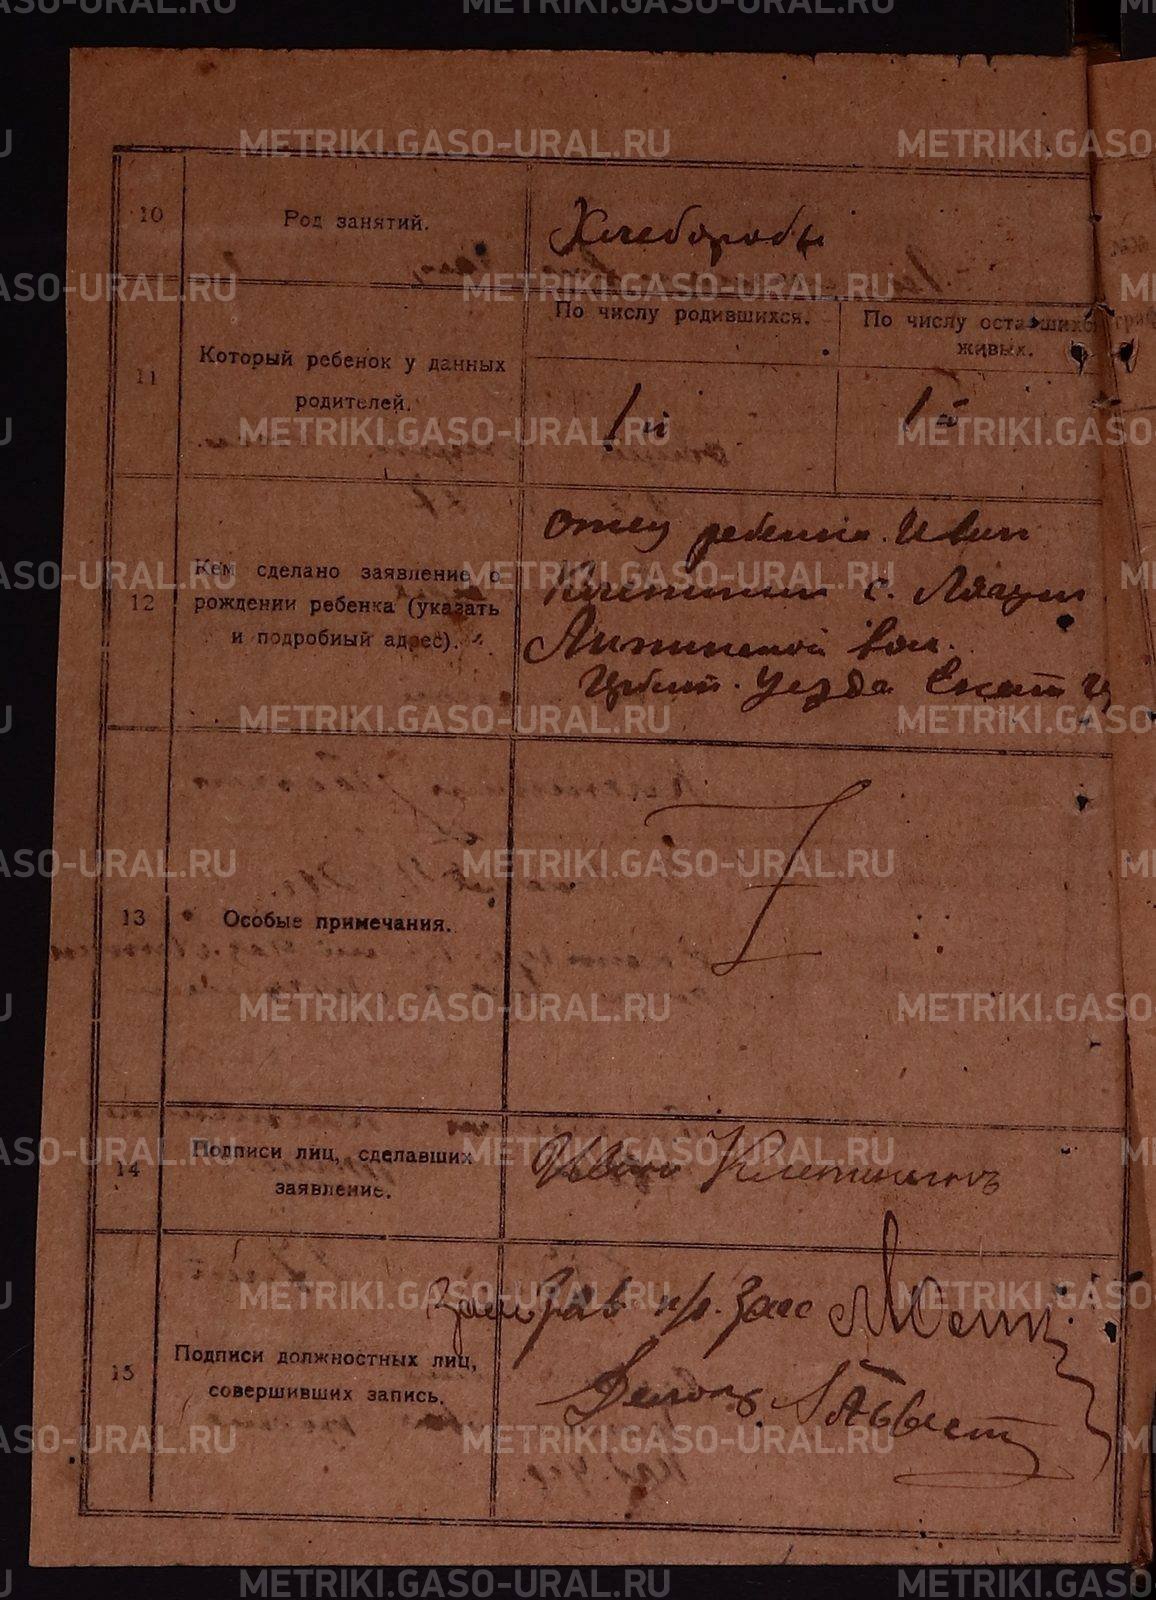 METRIKI.GASO-URAL.RU
10
Род занятий.
Хлеборобы
11
Который ребенок у данных
родителей.
По числу родившихся.
По числу оставшихся
живых.
1й
1й
12
Кем сделано заявление о
рождении ребенка (указать
и подробный адрес).
отец ребенка Иван
Клепинин с.
вол.
Ирбит. уезда Екат
13
Особые примечания.
14
Подписи лиц, сделавших
заявление.
Иван Клепининъ
15
Подписи должностных лиц,
совершивших запись.
Зам. Зав п/о. Загс
Делопр.